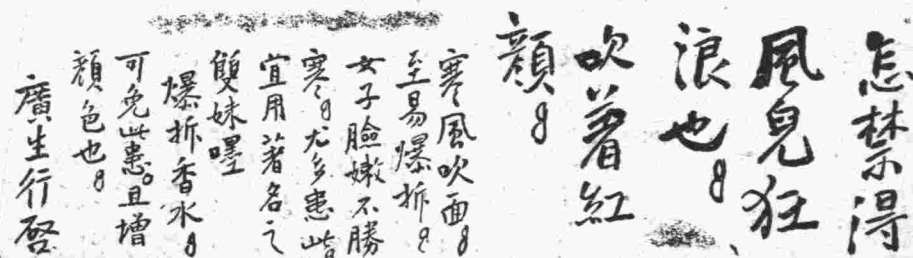 怎禁得
風兒狂
浪也。
吹著紅
顏。
寒風吹面。
至易爆拆。
女子臉嫩不勝
寒。尤多患此。
宜用著名之
雙妹嚜
爆拆香水。
可免此患。且增
顏色也。
廣生行啓